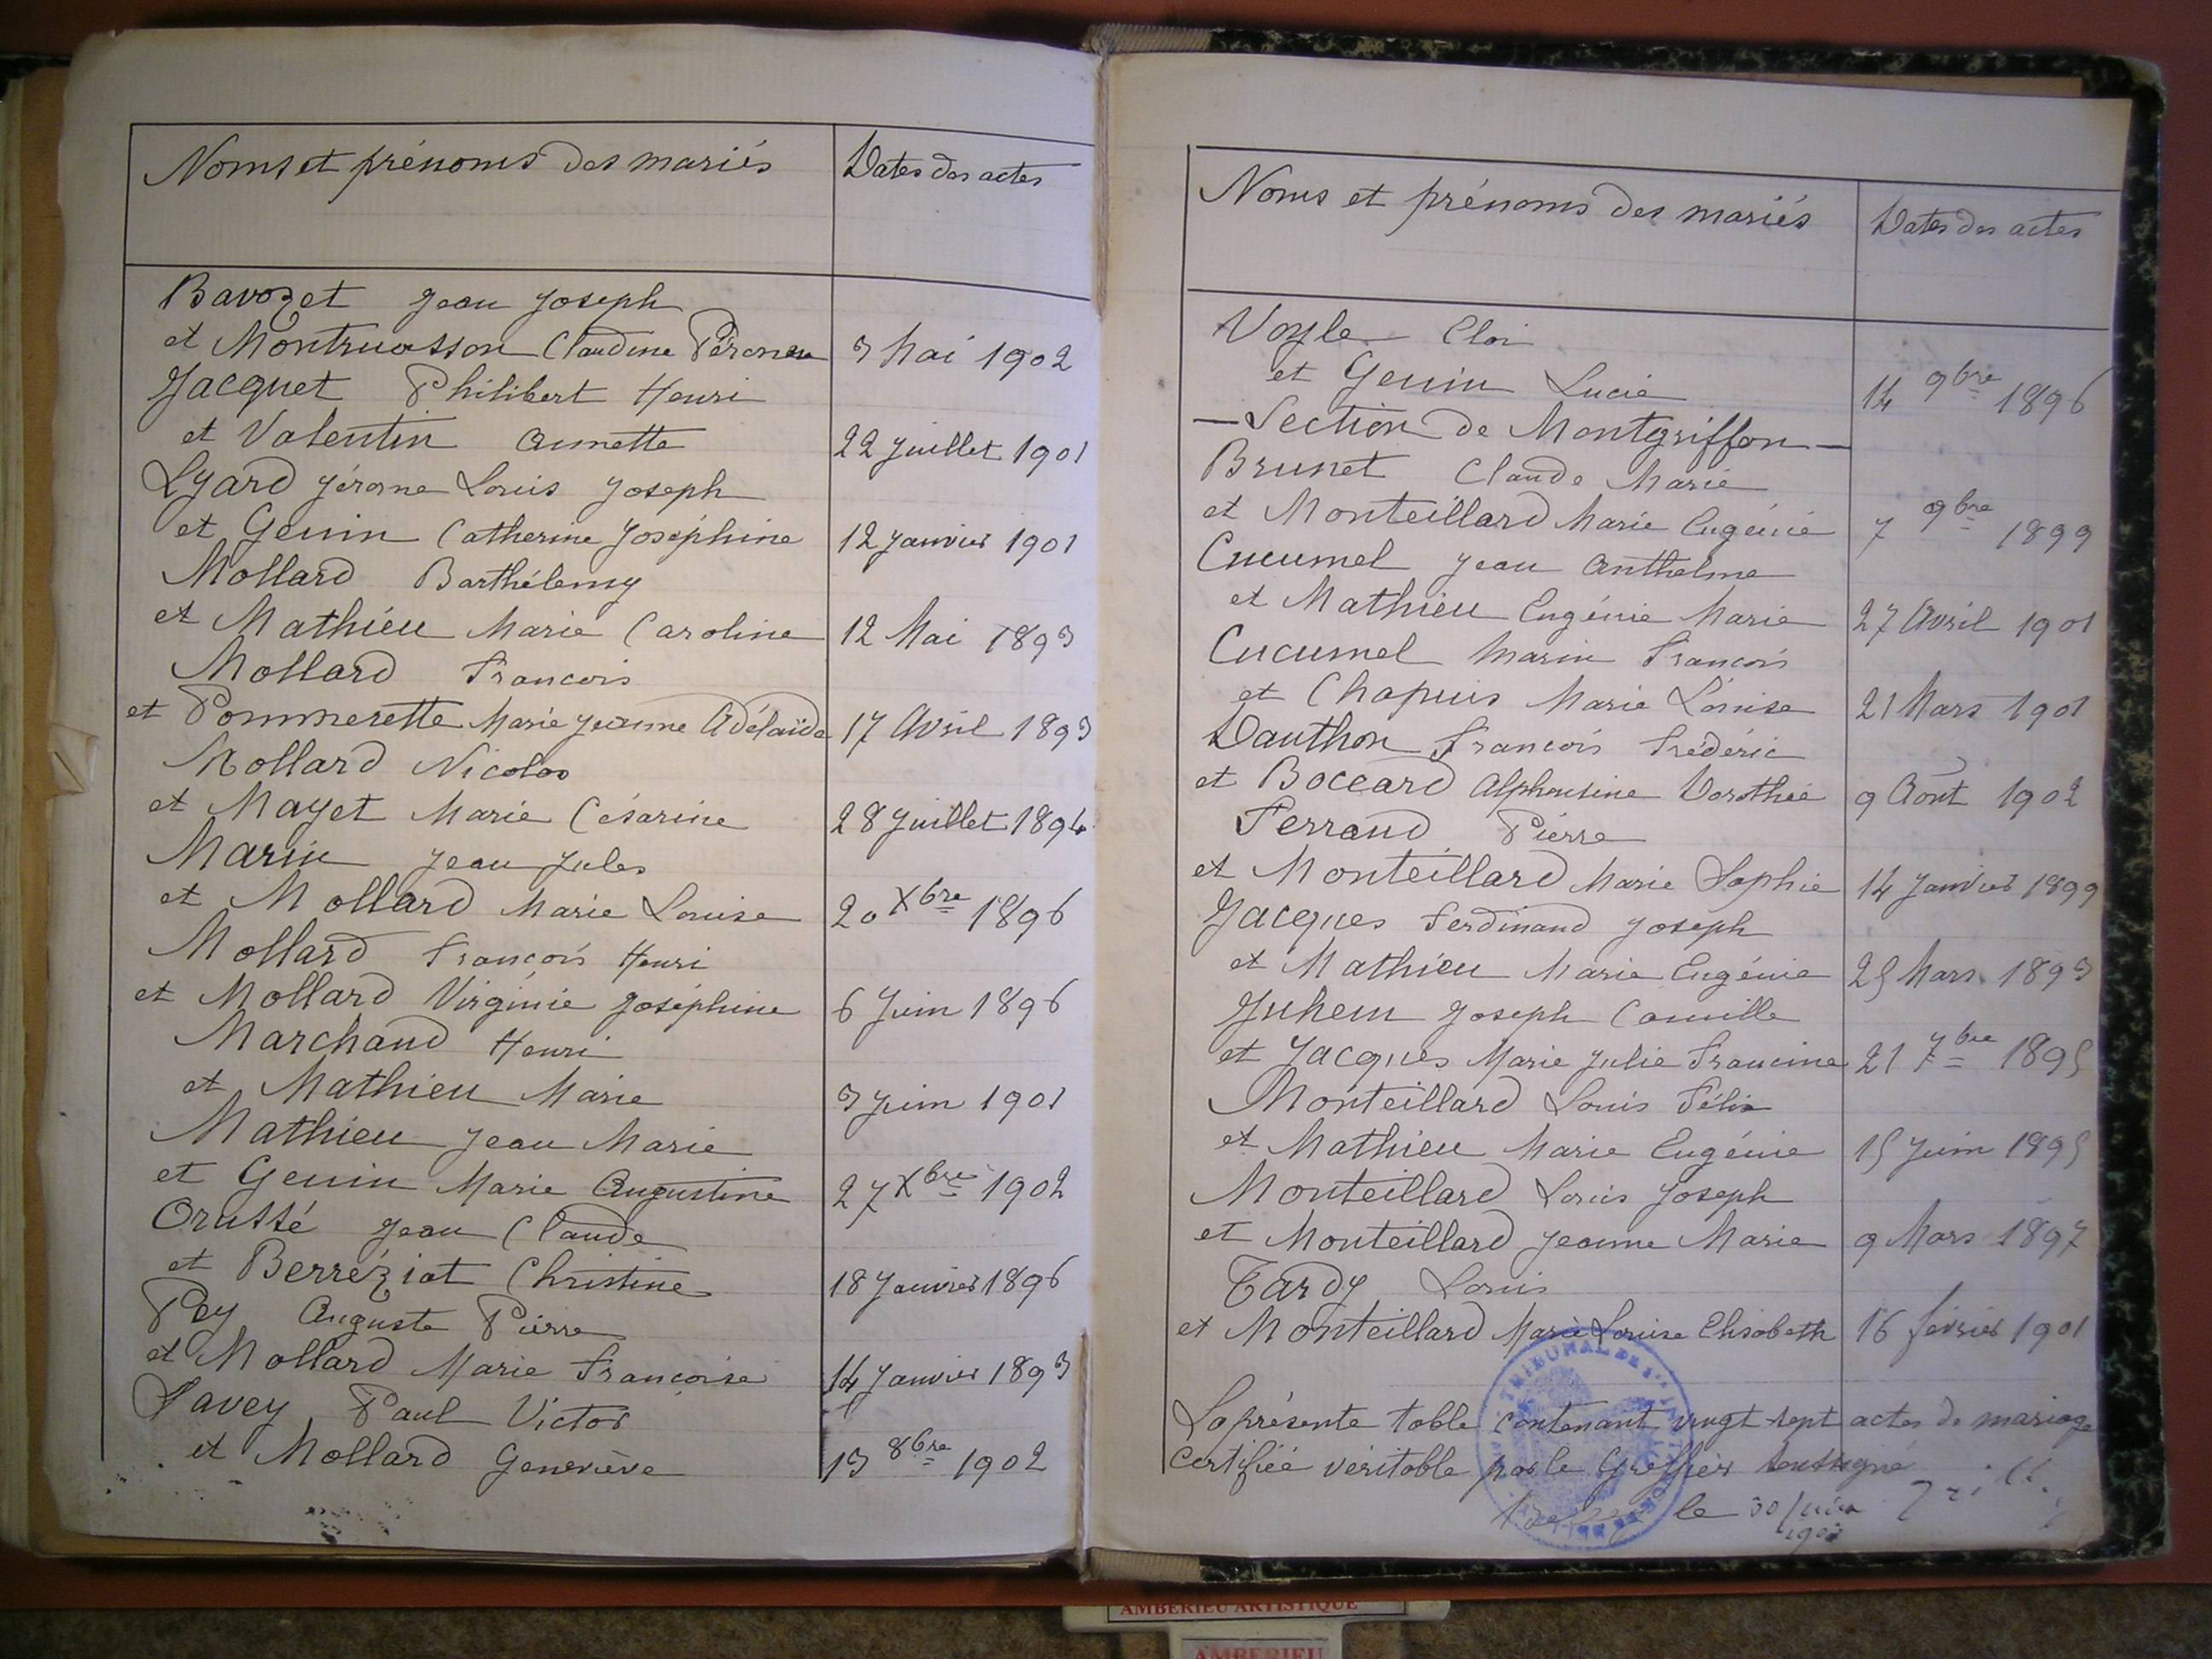 Noms et prénoms des mariés Dates des actes
Bavozet Jean Joseph
et Montrusson Claudine 3 Mai 1902
Jacquet Philibert Henri
et Valentin Annette 22 Juillet 1901
Lyard Jérome Louis Joseph
et Genin Catherine Joséphine 12 Janvier 1901
Mollard Barthélemy
et Mathieu Marie Caroline 12 Mai 1893
Mollard Francois
et Pommerette Marie Jeanne Adélaïde 17 Avril 1893
Mollard Nicolas
et Mayet Marie Césarine 28 Juillet 1894
Marin Jean Jules
et Mollard Marie Louise 20 Xbre 1896
Mollard François Henri
et Mollard Virginie Joséphine 6 Juin 1896
Marchand Henri
et Mathieu Marie 3 Juin 1901
Mathieu Jean Marie
et Genin Marie Augustine 27 Xbre 1902
Orussé Jean Claude
et Berréziat Christine 18 Janvier 1896
Pey Auguste Pierre
et Mollard Marie Françoise 14 Janvier 1893
Savey Paul Victor
et Mollard Geneviève 13 8bre 1902
Noms et prénoms des mariés Dates des actes
Voyle Eloi
et Genin Lucie 14 9bre 1896
— Section de Montgriffon —
Brunet Claude Marie
et Monteillard Marie Eugénie 7 9bre 1899
Cucumel Jean Anthelme
et Mathieu Eugénie Marie 27 Avril 1901
Cucumel Marin François
et Chapuis Marie Louise 21 Mars 1901
Dauthon François Frédéric
et Boccard Alphonsine Dorothée 9 Août 1902
Ferrand Pierre
et Monteillard Marie Sophie 14 Janvier 1899
Jacques Ferdinand Joseph
et Mathieu Marie Eugénie 25 Mars 1893
Juhem Joseph Camille
et Jacques Marie Julie Francine 21 7bre 1895
Monteillard Louis Félix
et Mathieu Marie Eugénie 15 Juin 1895
Monteillard Louis Joseph
et Monteillard Jeanne Marie 9 Mars 1897
Tardy Louis
et Monteillard Marie Louise Elisabeth 16 février 1901
La présente table contenant vingt sept actes de mariage
certifiée véritable par le Greffier soussigné
le 30 juin
TRIBUNAL DE 1re
AMBERIEU ARTISTIQUE
AMBERIEU